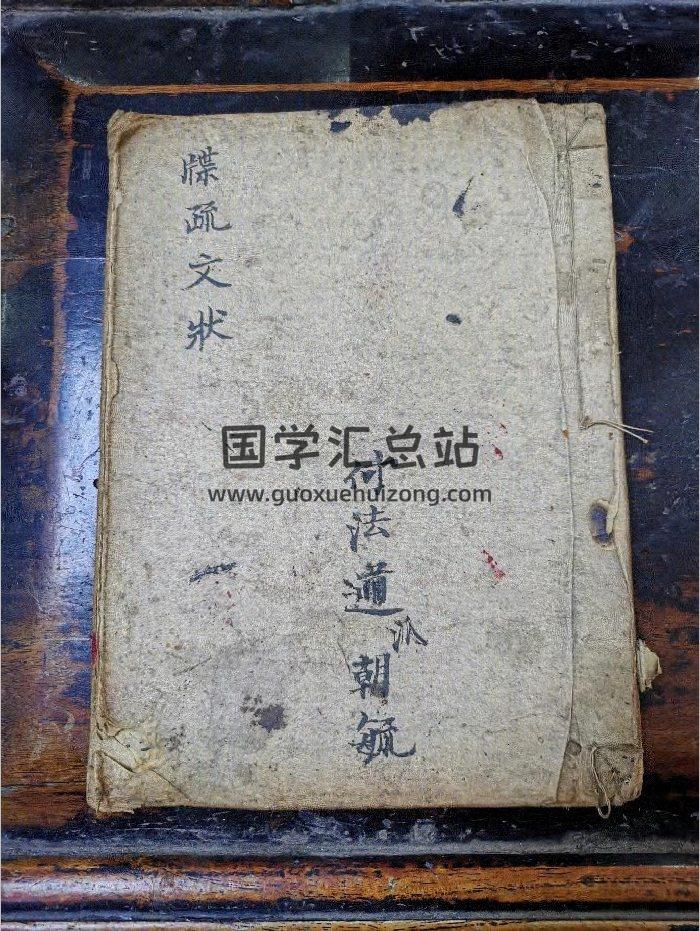 牒疏文狀
付法道派朝毓
国学汇总站
www.guoxuehuizong.com